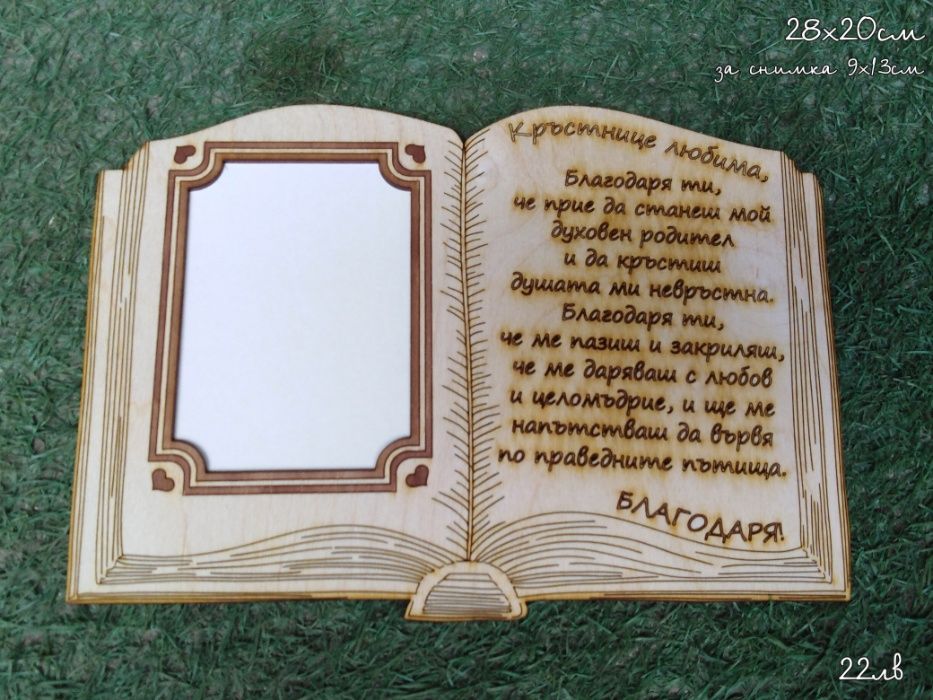 28х20см
за снимка 9х13см
Кръстнице любима,
Благодаря ти,
че прие да станеш мой
духовен родител
и да кръстиш
душата ми невръстна.
Благодаря ти,
че ме пазиш и закриляш,
че ме даряваш с любов
и целомъдрие, и ще ме
напътстваш да вървя
по праведните пътища.
БЛАГОДАРЯ!
22лв